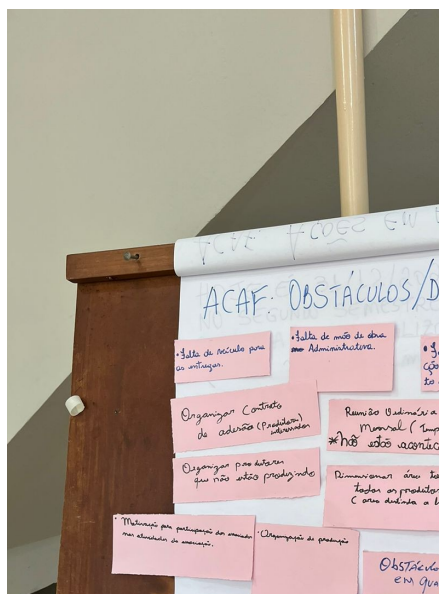 ACAF: AÇOES EM
ACAF: OBSTÁCULOS/D
• Falta de veículo para
as entregas.
• Falta de mão de obra
Administrativa.
Organizar Contrato
de adesão (Produtores)
interessados
Reunião Ordinária
Mensal (
*não estão acontec
Organizar produtores
que não estão produzindo
Dimensionar área
todos os produtor
(area
• Motivação para participação dos associados
nas atividades da associação.
• Organização da produção
OBSTÁCUL
EM QUA